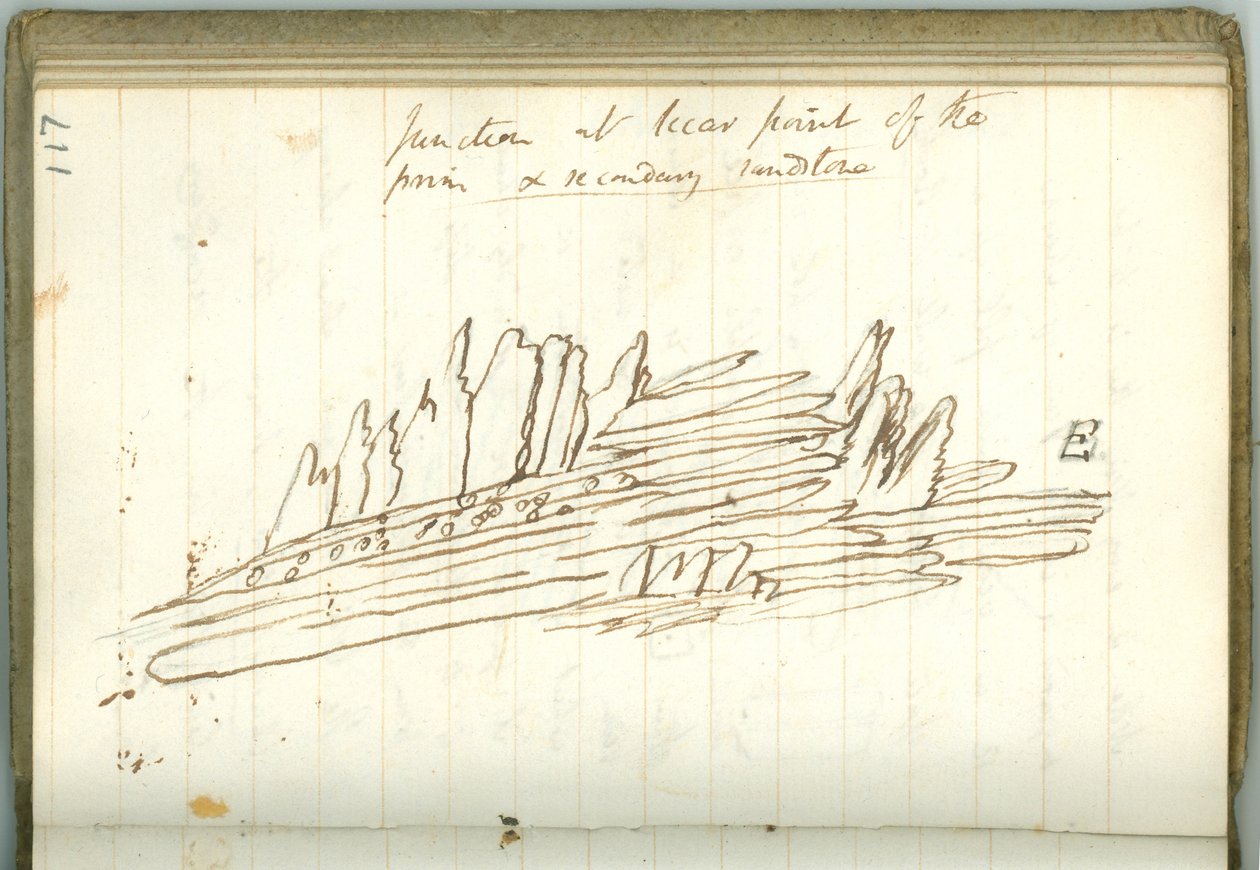 117
Junction at Siccar point of the
prim & secondary sandstone
E